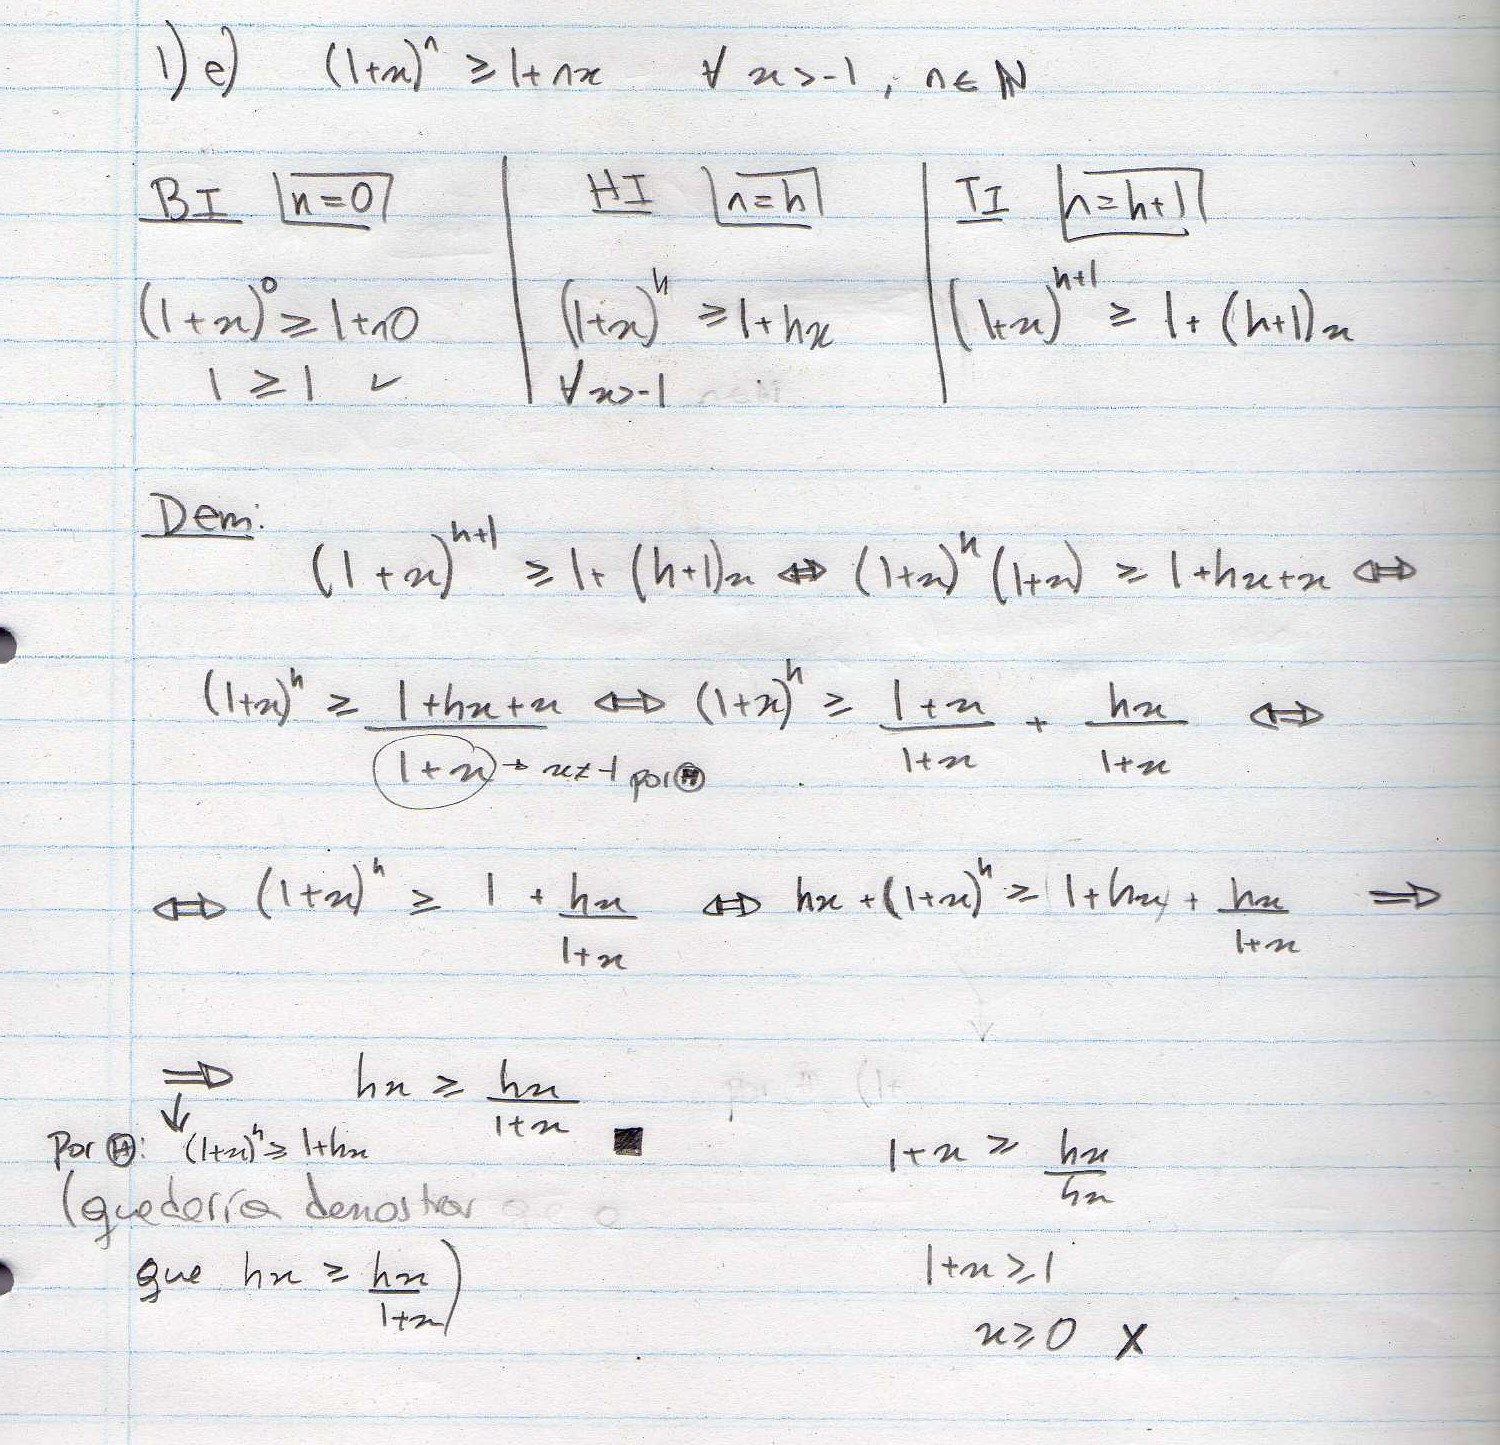 1) e) (1+x)^n ≥ 1+nx ∀ x>-1, n∈ℕ
BI n=0 HI n=h TI n=h+1
(1+x)^0 ≥ 1+n0 (1+x)^h ≥ 1+hx (1+x)^(h+1) ≥ 1+(h+1)x
1 ≥ 1 ✓ ∀x>-1
Dem:
(1+x)^(h+1) ≥ 1+(h+1)x ⇔ (1+x)^h (1+x) ≥ 1+hx+x ⇔
(1+x)^h ≥ (1+hx+x)/(1+x) → x≠-1 por Ⓗ ⇔ (1+x)^h ≥ (1+x)/(1+x) + hx/(1+x) ⇔
⇔ (1+x)^h ≥ 1 + hx/(1+x) ⇔ hx+(1+x)^h ≥ 1+hx + hx/(1+x) ⇒
⇒ hx ≥ hx/(1+x) ■
↓
Por Ⓗ: (1+x)^h ≥ 1+hx
(quedaría demostrar
que hx ≥ hx/(1+x))
1+x ≥ hx/hx
1+x ≥ 1
x ≥ 0 X